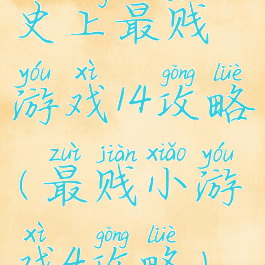 史上最贱
yóu xì gōng lüè
游戏14攻略
zuì jiàn xiǎo yóu
(最贱小游
xì gōng lüè
戏4攻略)